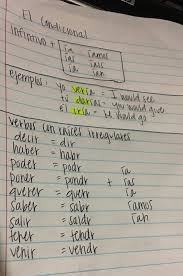 El Condicional
infinitivo +
ía íamos
ías íais
ía ían
ejemplos: yo vería = I would see
tú darías = you would give
él iría = he would go
verbos con raíces irregulares
decir = dir
haber = habr
poder = podr
poner = pondr
querer = querr
saber = sabr
salir = saldr
tener = tendr
venir = vendr
+ ía
ías
ía
íamos
ían